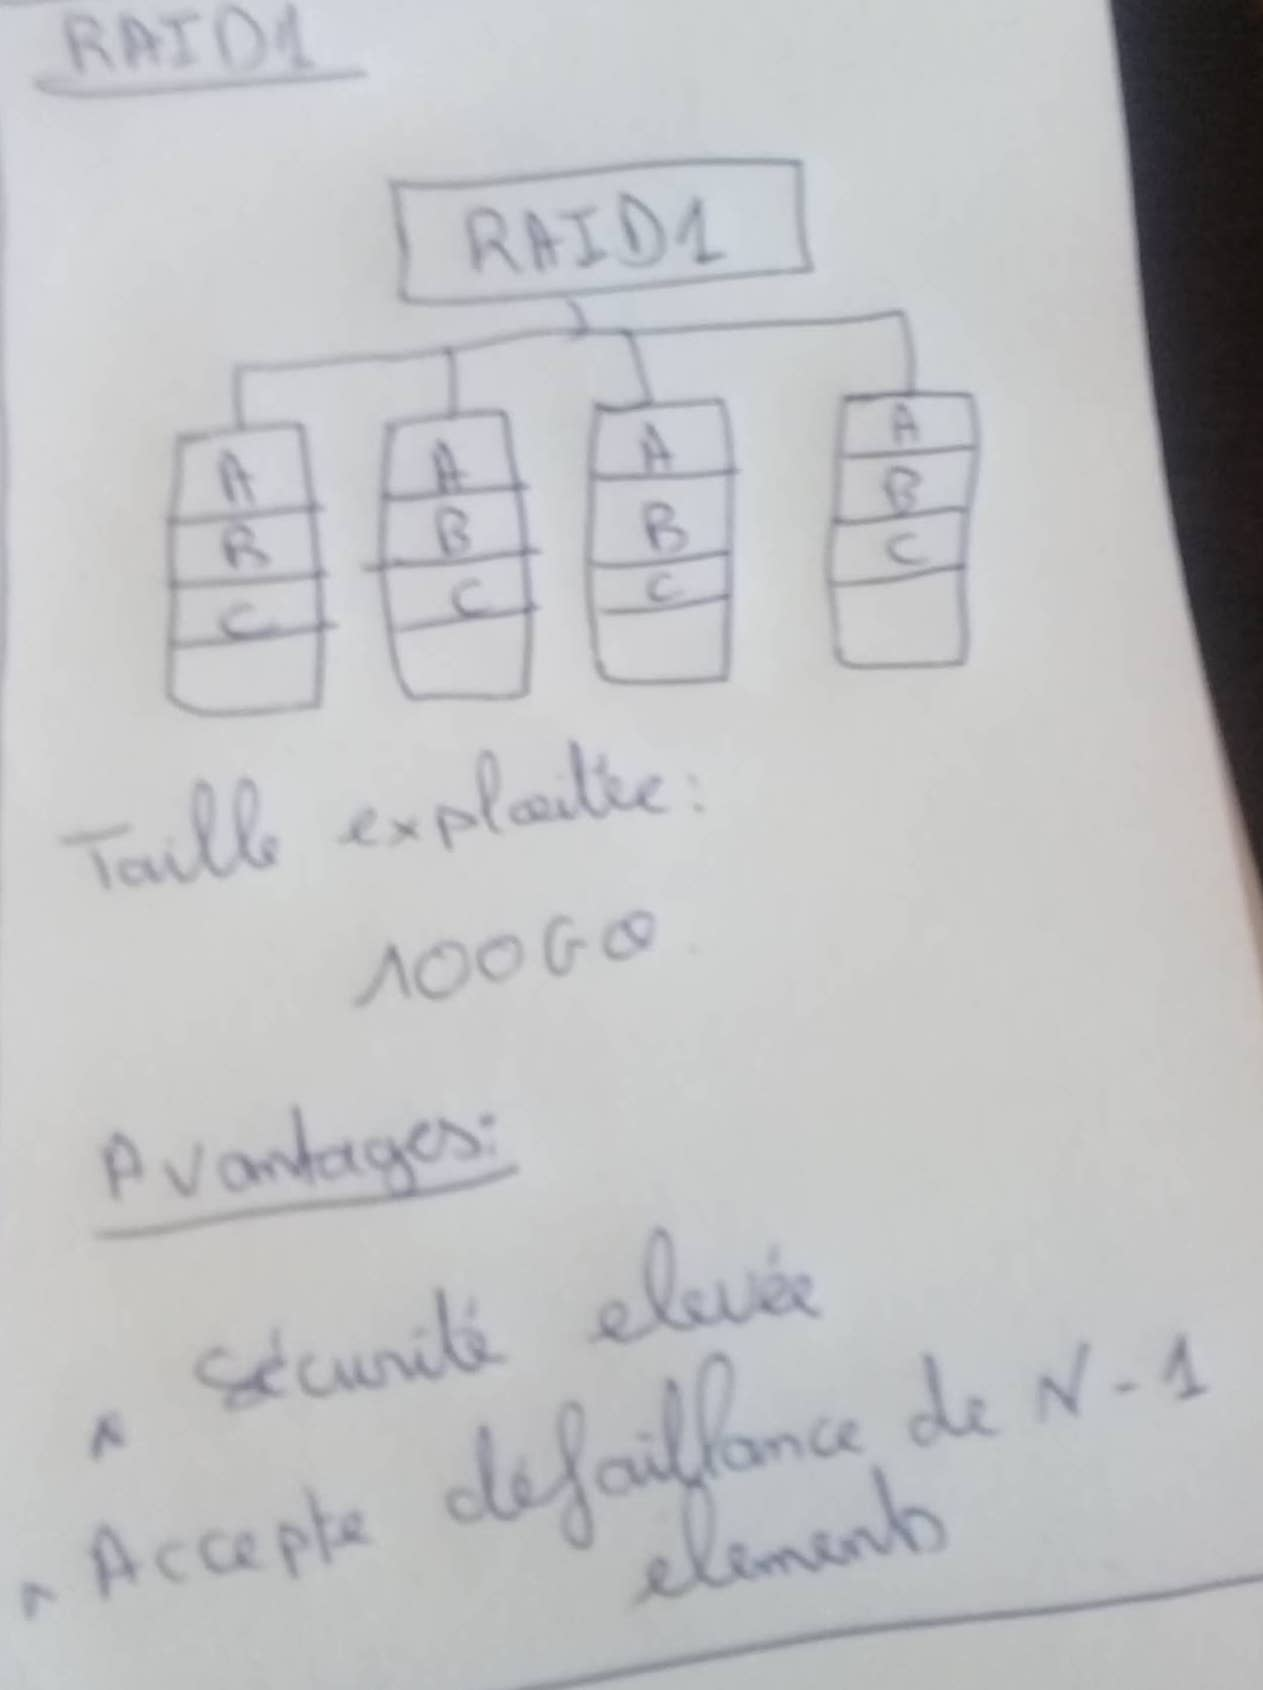 RAID1
RAID1
A A A A
B B B B
C C C C
Taille exploitée:
100GO
Avantages:
Sécurité elevée
Accepte defaillance de N-1
elements